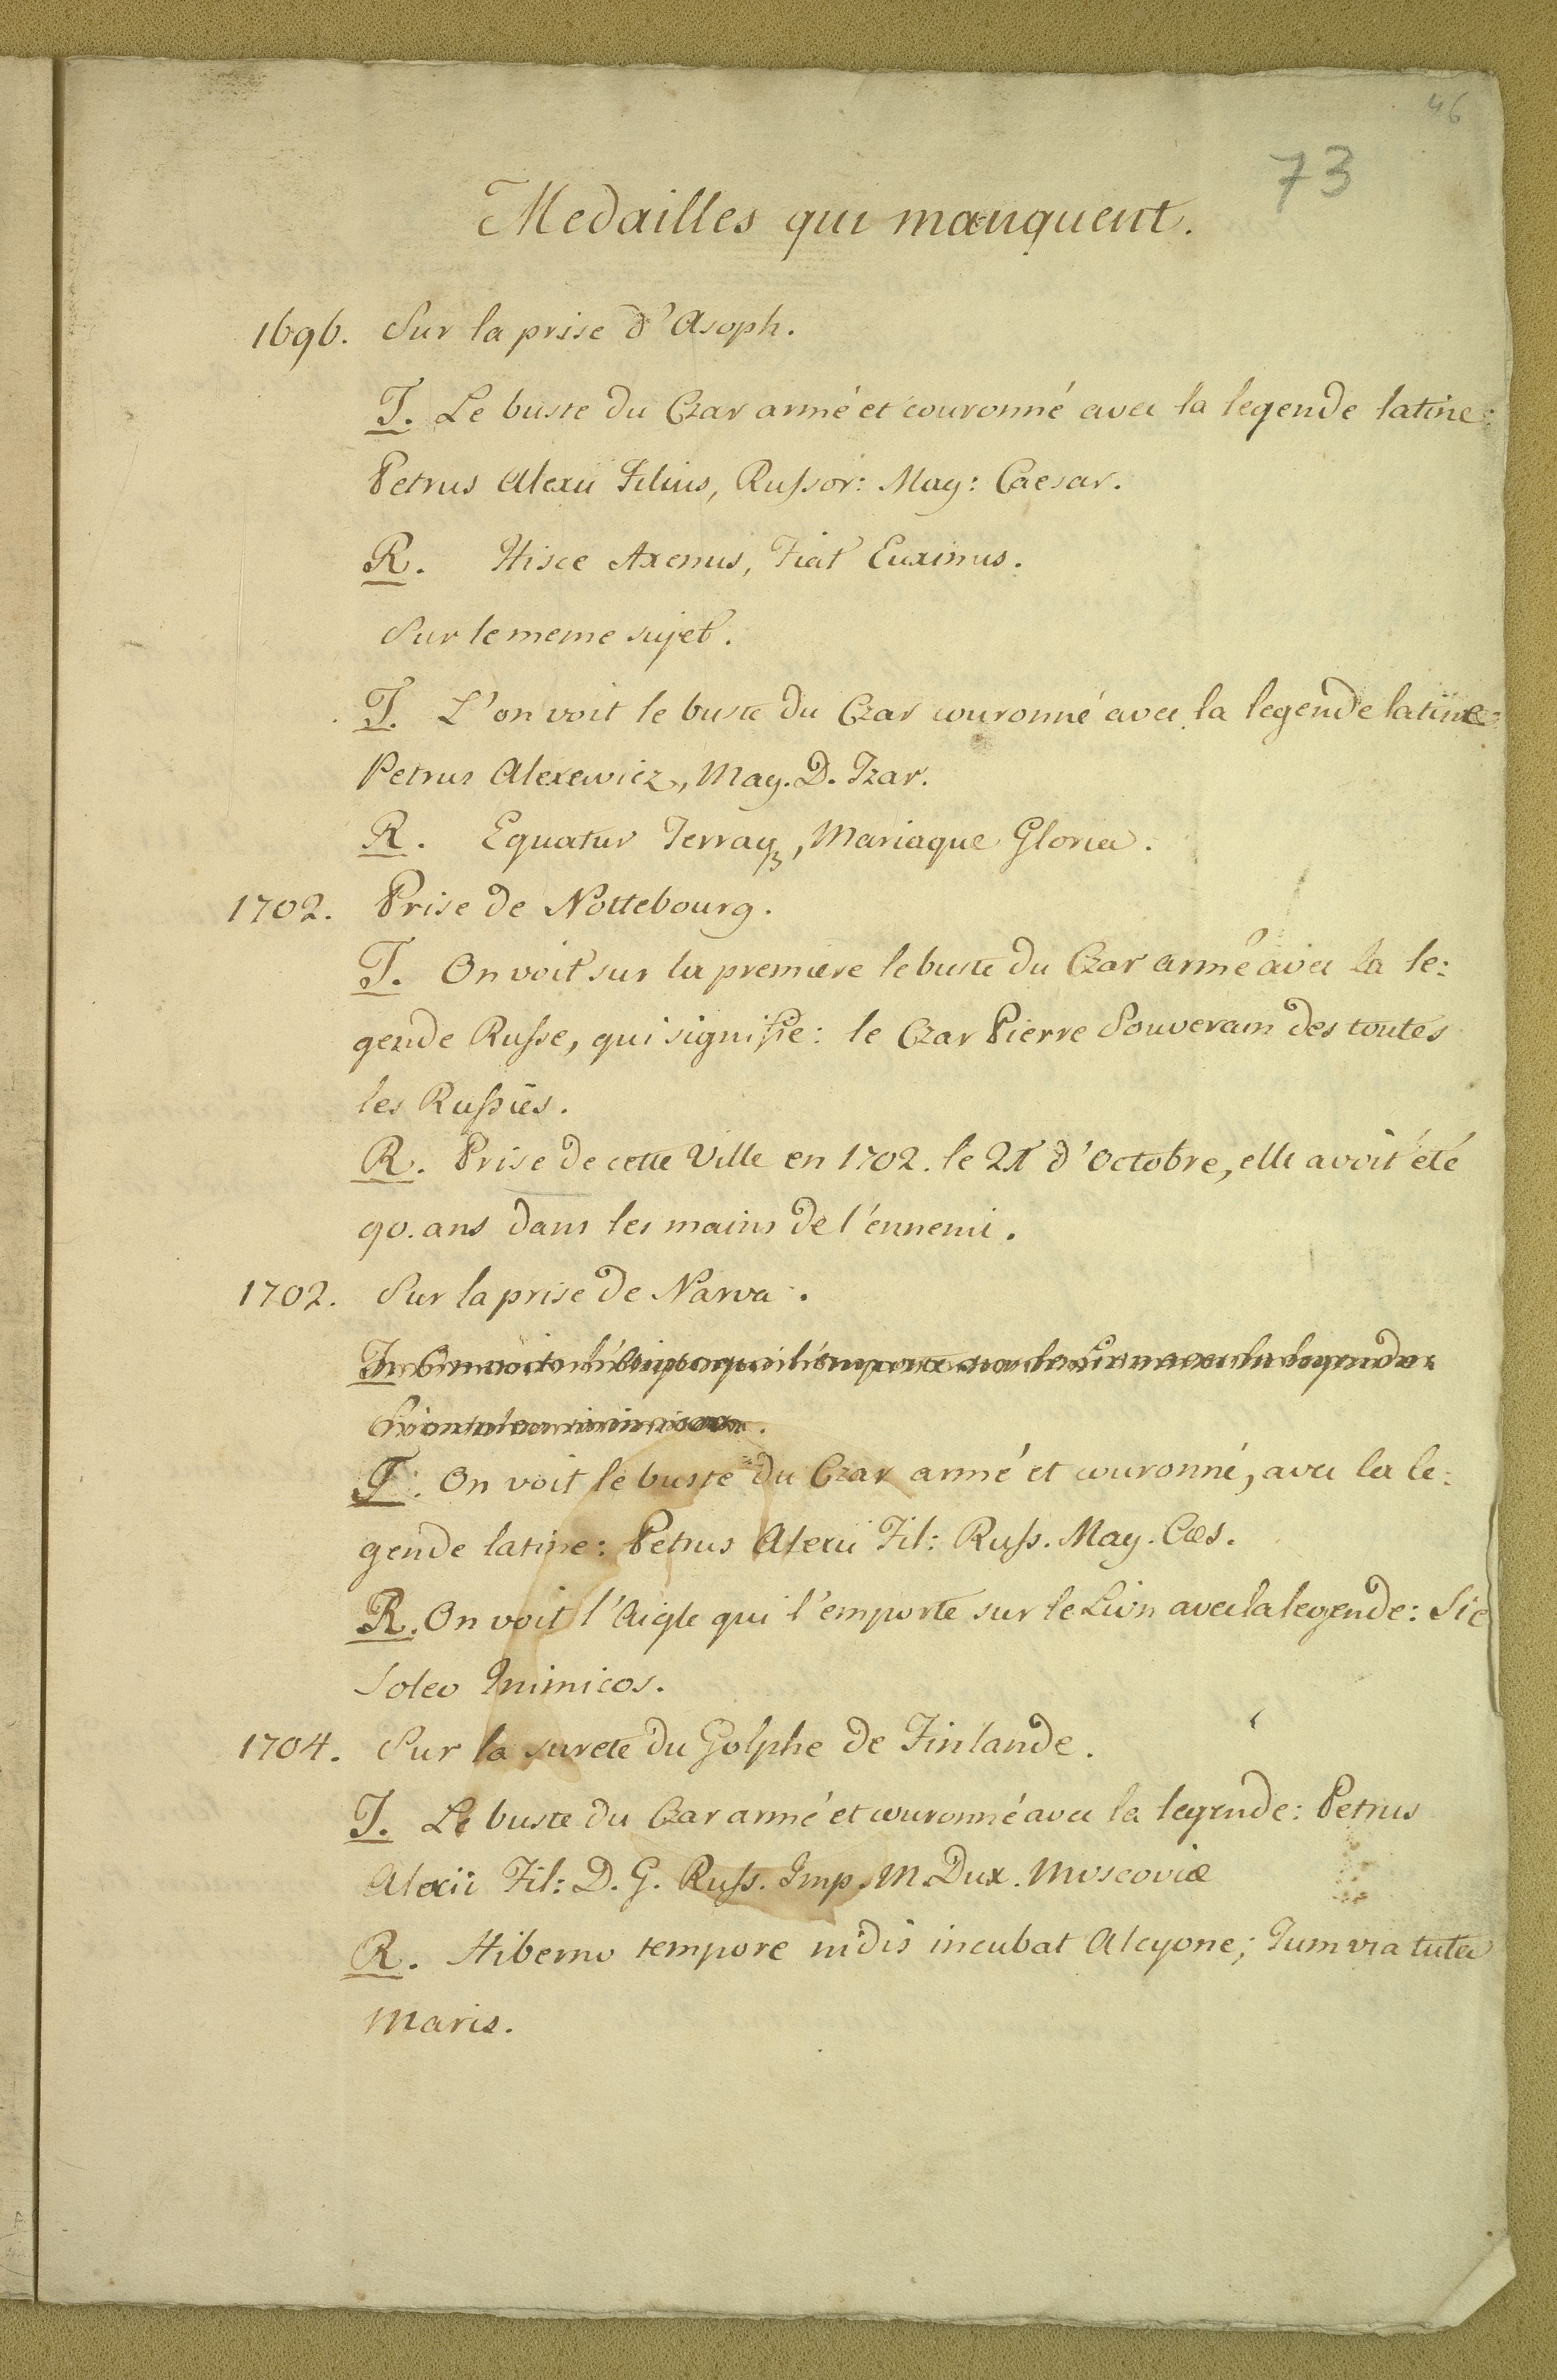 46
73
Medailles qui manquent.
1696. Sur la prise d'Asoph.
T. Le buste du Czar armé et couronné avec la legende latine:
Petrus Alexii Filius, Russor: Mag: Caesar.
R. Hisce Axenus, Fiat Euximus.
Sur le meme sujet.
T. L'on voit le buste du Czar couronné avec la legende latine:
Petrus Alexewicz, Mag. D. Tzar.
R. Equatur Terraq3, Mariaque Gloria.
1702. Prise de Nottebourg.
T. On voit sur la premiere le buste du Czar armé avec la le:
gende Russe, qui signifie: le Czar Pierre Souverain des toutes
les Russies.
R. Prise de cette Ville en 1702. le 21 d'Octobre, elle avoit été
90. ans dans les mains de l'ennemi.
1702. Sur la prise de Narva.
T. On voit l'Aigle qui l'emporte sur le Lion avec la legende:
T. On voit le buste du Czar armé et couronné, avec la le:
gende latine: Petrus Alexii Fil: Russ. Mag. Cæs.
R. On voit l'Aigle qui l'emporte sur le Lion avec la legende: Sic
Soleo Inimicos.
1704. Sur la sureté du Golphe de Finlande.
T. Le buste du Czar armé et couronné avec la legende: Petrus
Alexii Fil: D. G. Russ. Imp. M. Dux. Moscoviæ
R. Hiberno tempore nidis incubat Alcyone; Tum via tuta
Maris.